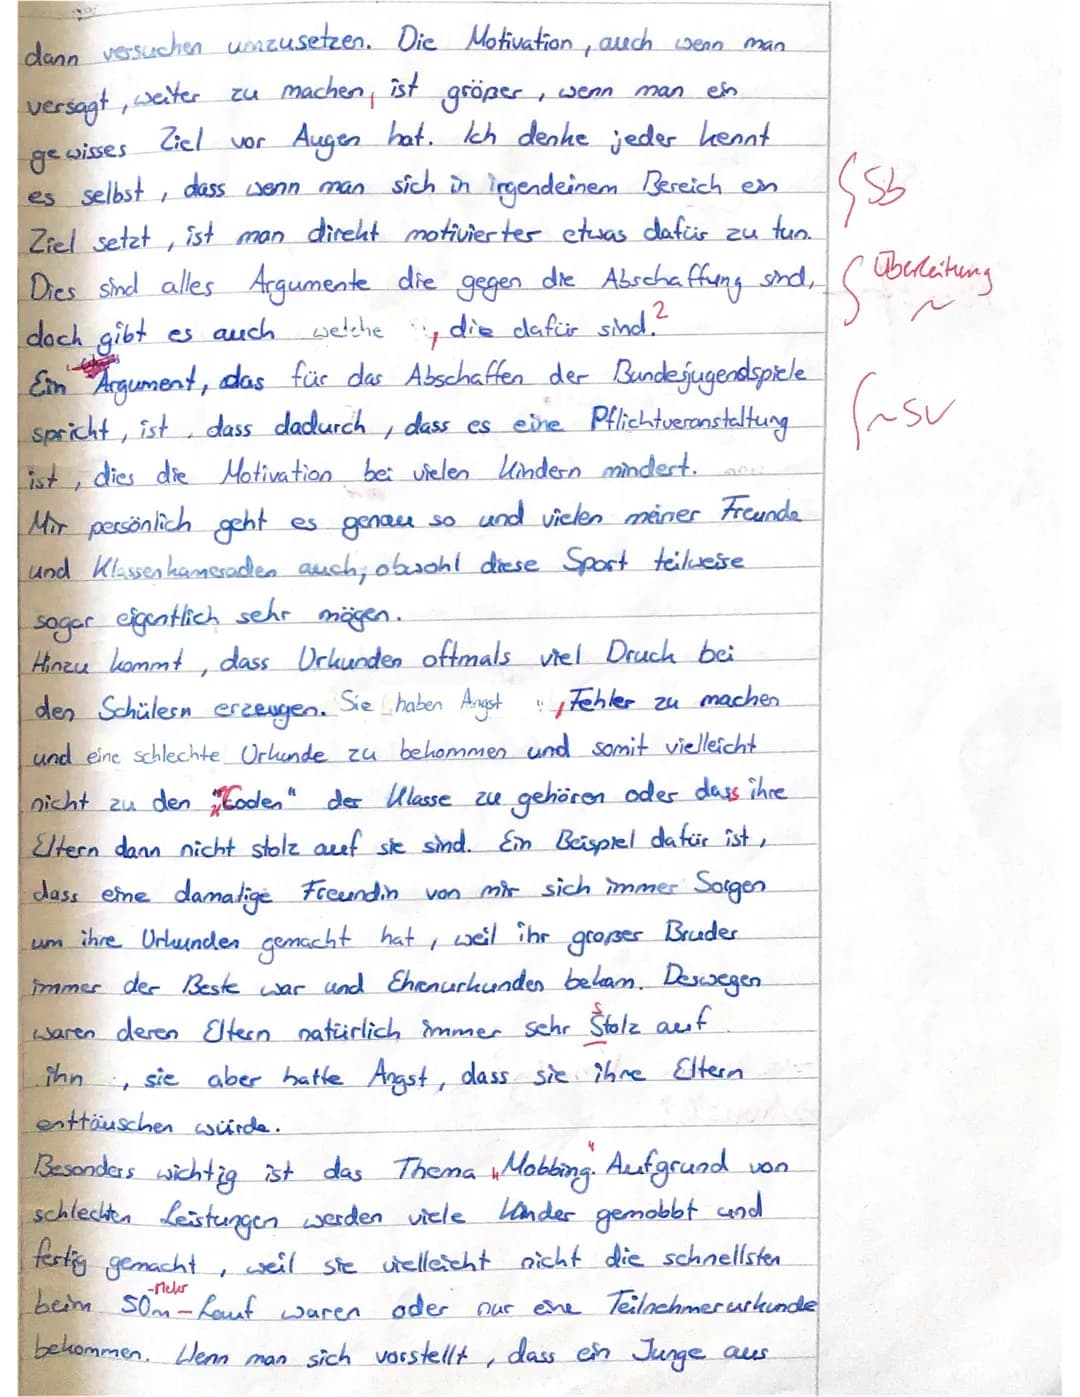 dann versuchen umzusetzen. Die Motivation, auch wenn man
versagt, weiter zu machen, ist größer, wenn man ein
gewisses Ziel vor Augen hat. Ich denke jeder kennt
es selbst, dass wenn man sich in irgendeinem Bereich ein
Sb
Ziel setzt, ist man direkt motivierter etwas dafür zu tun.
Dies sind alles Argumente die gegen die Abschaffung sind,
Überleitung
~
doch gibt es auch welche, die dafür sind.?
Ein Argument, das für das Abschaffen der Bundesjugendspiele
spricht, ist, dass dadurch, dass es eine Pflichtveranstaltung
~SV
ist, dies die Motivation bei vielen Kindern mindert.
Mir persönlich geht es genau so und vielen meiner Freunde
und Klassenkameraden auch, obwohl diese Sport teilweise
sogar eigentlich sehr mögen.
Hinzu kommt, dass Urkunden oftmals viel Druck bei
den Schülern erzeugen. Sie haben Angst, Fehler zu machen
und eine schlechte Urkunde zu bekommen und somit vielleicht
nicht zu den „Coolen" der Klasse zu gehören oder dass ihre
Eltern dann nicht stolz auf sie sind. Ein Beispiel dafür ist,
dass eine damalige Freundin von mir sich immer Sorgen
um ihre Urkunden gemacht hat, weil ihr großer Bruder
immer der Beste war und Ehrenurkunden bekam. Deswegen
s
waren deren Eltern natürlich immer sehr Stolz auf
ihn, sie aber hatte Angst, dass sie ihre Eltern
enttäuschen würde.
Besonders wichtig ist das Thema „Mobbing". Aufgrund von
schlechten Leistungen werden viele Kinder gemobbt und
fertig gemacht, weil sie vielleicht nicht die schnellsten
-Meter
beim 50m-Lauf waren oder nur eine Teilnehmerurkunde
bekommen. Wenn man sich vorstellt, dass ein Junge aus